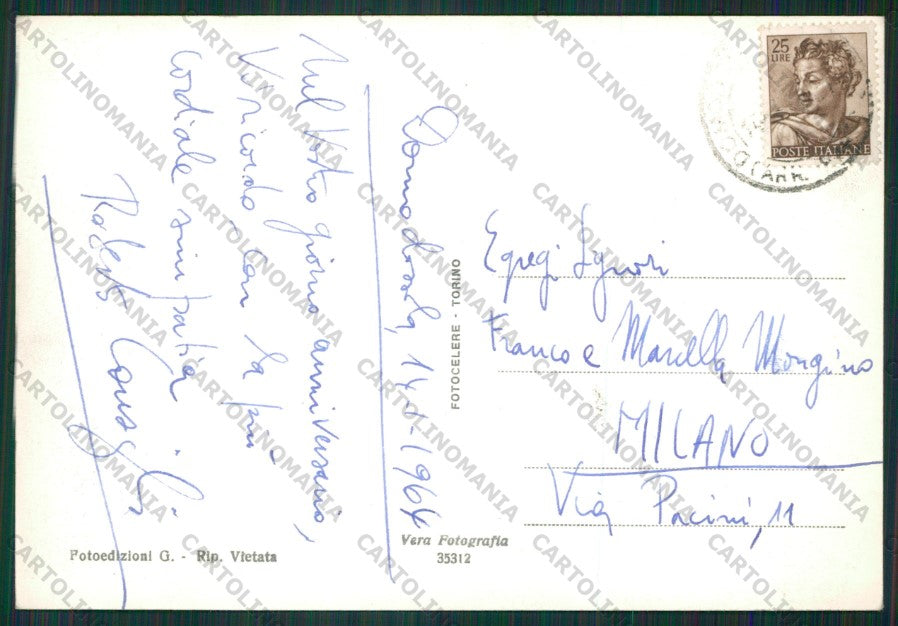 Domodossola, 14-8-1964
Nel Vostro giorno anniversario,
Vi ricordo con la più
cordiale simpatia.
Roberto
Egregi Signori
Franco e Marcella Mongino
MILANO
Via Pacini, 11
25
LIRE
POSTE ITALIANE
FOTOCELERE - TORINO
Vera Fotografia
35312
Fotoedizioni G. - Rip. Vietata
CARTOLINOMANIA